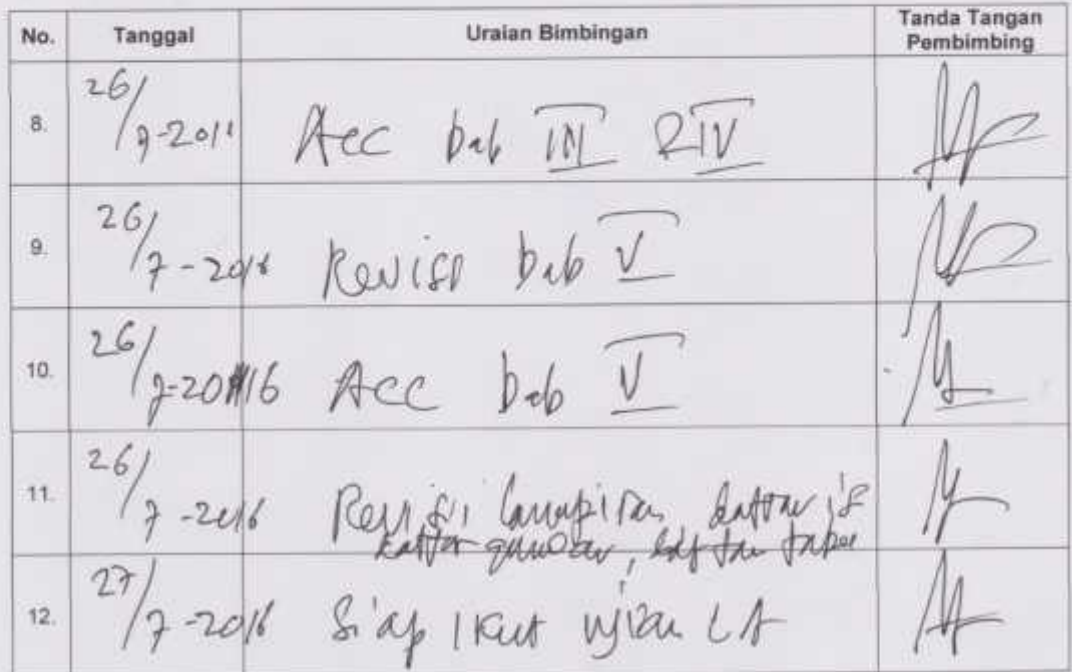 No. Tanggal Uraian Bimbingan Tanda Tangan Pembimbing
8. 26/7-2016 Acc bab III & IV
9. 26/7-2016 Revisi bab V
10. 26/7-2016 Acc bab V
11. 26/7-2016 Revisi lampiran, daftar isi
daftar gambar, daftar tabel
12. 27/7-2016 Siap ikut ujian LA